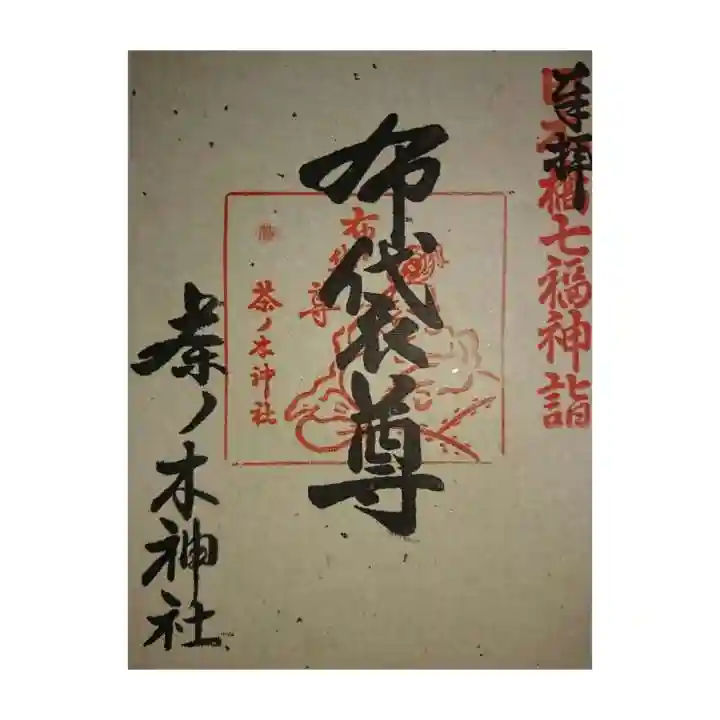 奉拝
七福神詣
布袋尊
布袋尊
茶ノ木神社
茶ノ木神社